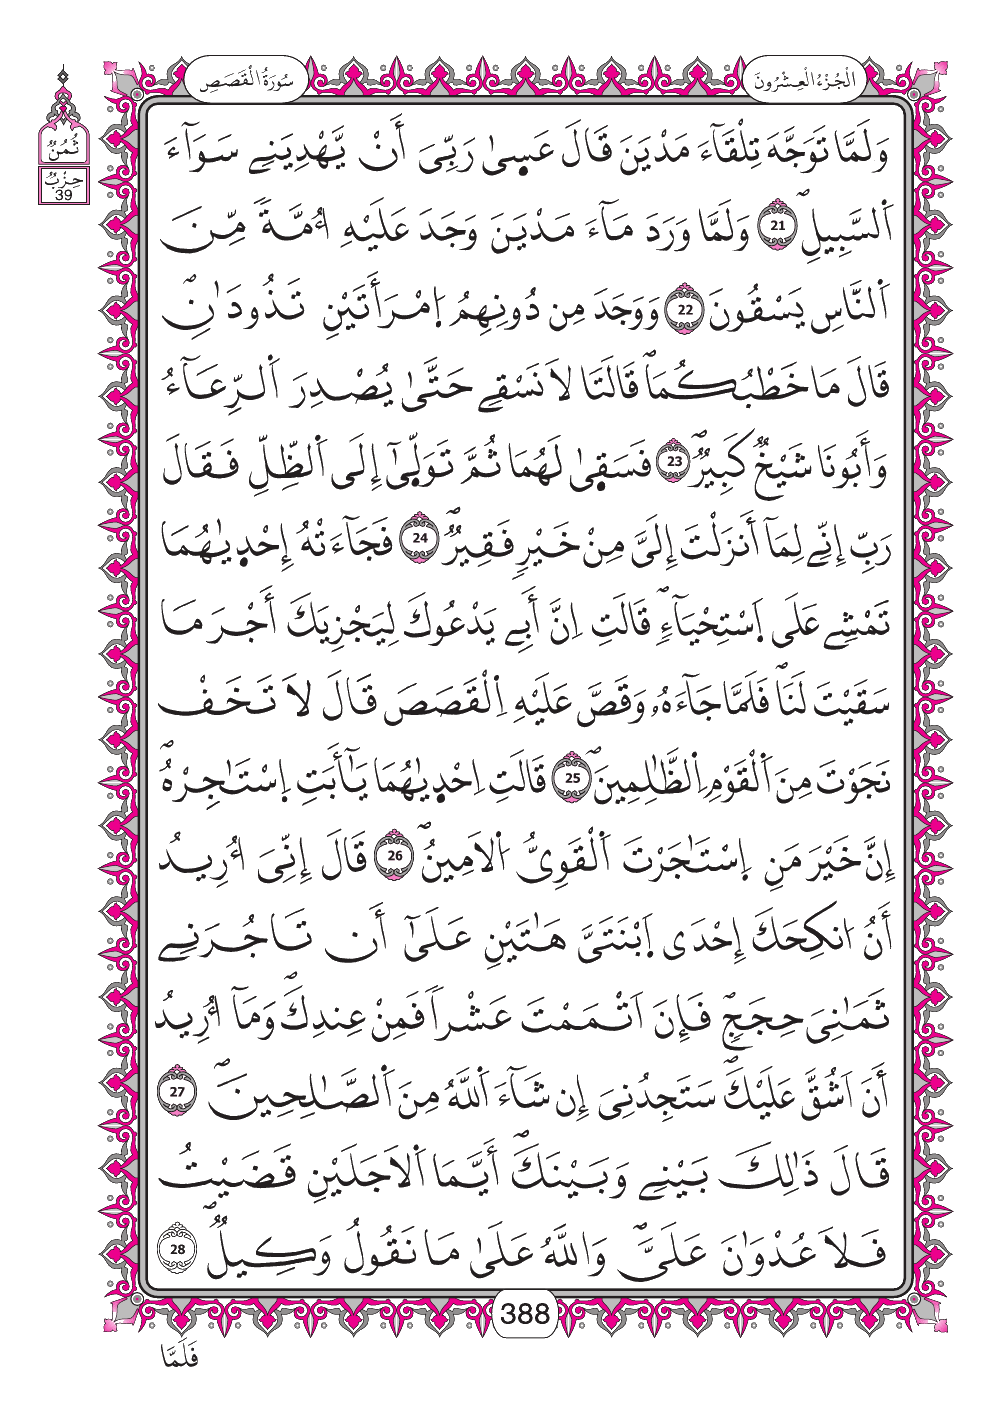 سُورَةُ الْقَصَصِ
الْجُزْءُ الْعِشْرُونَ
ثُمُنٌ
حِزْبٌ
39
وَلَمَّا تَوَجَّهَ تِلْقَآءَ مَدْيَنَ قَالَ عَس۪ىٰ رَبِّىَ أَنْ يَّهْدِيَنِے سَوَآءَ
اَ۬لسَّبِيلِۖ 21 وَلَمَّا وَرَدَ مَآءَ مَدْيَنَ وَجَدَ عَلَيْهِ أُمَّةٗ مِّنَ
اَ۬لنَّاسِ يَسْقُونَ 22 وَوَجَدَ مِن دُونِهِمُ اِ۪مْرَأَتَيْنِ تَذُودَٰنِۖ
قَالَ مَا خَطْبُكُمَاۖ قَالَتَا لَا نَسْقِے حَتَّىٰ يُصْدِرَ اَ۬لرِّعَآءُ
وَأَبُونَا شَيْخٞ كَبِيرٞۖ 23 فَسَق۪ىٰ لَهُمَا ثُمَّ تَوَلّ۪ىٰٓ إِلَى اَ۬لظِّلِّ فَقَالَ
رَبِّ إِنِّے لِمَآ أَنزَلْتَ إِلَىَّ مِنْ خَيْرٖ فَقِيرٞۖ 24 فَجَآءَتْهُ إِحْد۪يٰهُمَا
تَمْشِے عَلَى اَ۪سْتِحْيَآءٖۖ قَالَتِ اِنَّ أَبِے يَدْعُوكَ لِيَجْزِيَكَ أَجْرَ مَا
سَقَيْتَ لَنَاۖ فَلَمَّا جَآءَهُۥ وَقَصَّ عَلَيْهِ اِ۬لْقَصَصَ قَالَ لَا تَخَفْ
نَجَوْتَ مِنَ اَ۬لْقَوْمِ اِ۬لظَّٰلِمِينَۖ 25 قَالَتِ اِحْد۪يٰهُمَا يَٰٓأَبَتِ اِ۪سْتَٰجِرْهُۖ
إِنَّ خَيْرَ مَنِ اِ۪سْتَٰجَرْتَ اَ۬لْقَوِىُّ اَ۬لَامِينُۖ 26 قَالَ إِنِّىَ أُرِيدُ
أَنُ ا۟نكِحَكَ إِحْدَى اَ۪بْنَتَىَّ هَٰتَيْنِ عَلَىٰٓ أَن تَاجُرَنِے
ثَمَٰنِىَ حِجَجٖۖ فَإِنَ اَتْمَمْتَ عَشْراٗ فَمِنْ عِندِكَۖ وَمَآ أُرِيدُ
أَنَ اَشُقَّ عَلَيْكَۖ سَتَجِدُنِىَ إِن شَآءَ اَ۬للَّهُ مِنَ اَ۬لصَّٰلِحِينَۖ 27
قَالَ ذَٰلِكَ بَيْنِے وَبَيْنَكَۖ أَيَّمَا اَ۬لَاجَلَيْنِ قَضَيْتُ
فَلَا عُدْوَٰنَ عَلَىَّۖ وَاللَّهُ عَلَىٰ مَا نَقُولُ وَكِيلٞۖ 28
388
فَلَمَّا